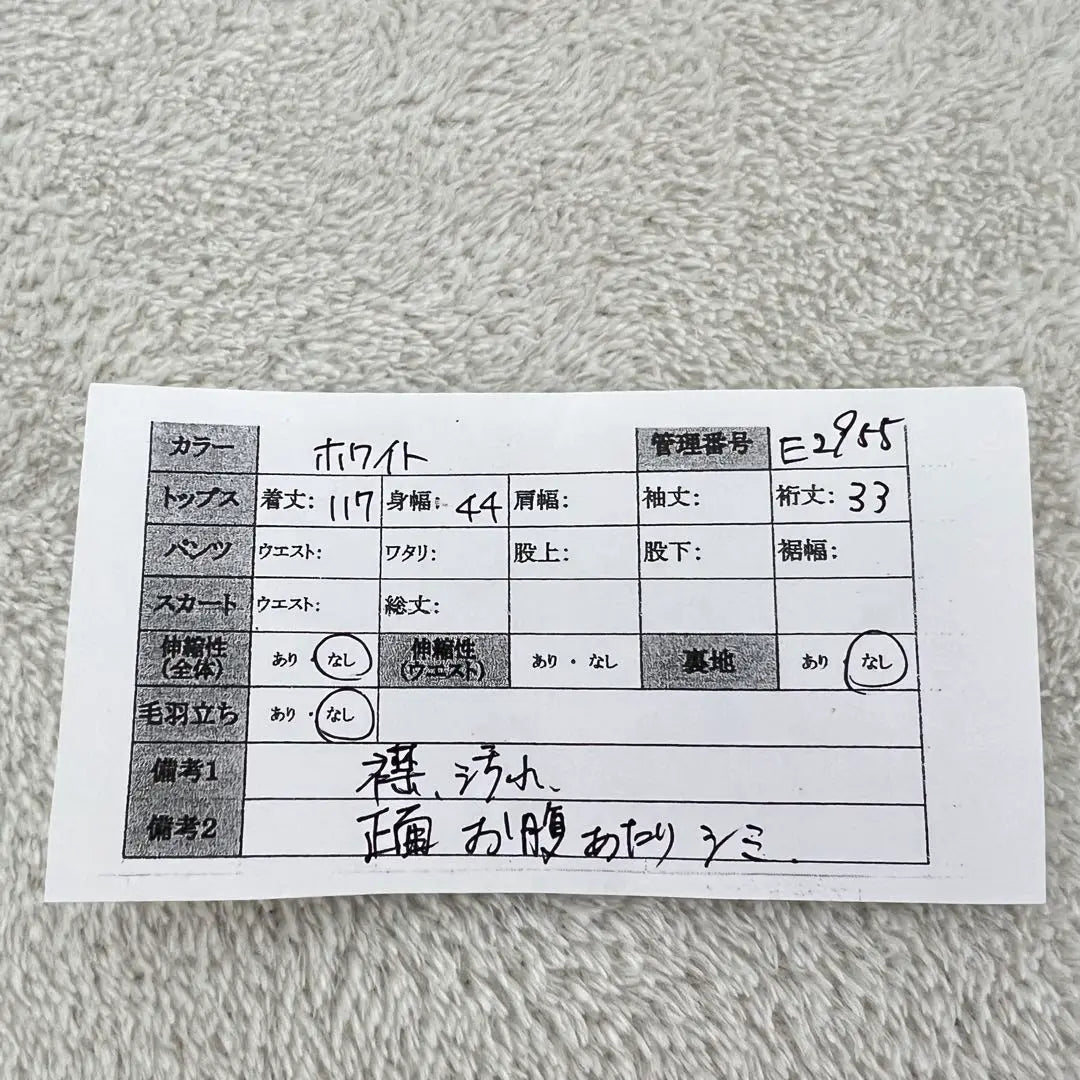 カラー ホワイト 管理番号 E2955
トップス 着丈: 117 身幅: 44 肩幅: 袖丈: 裄丈: 33
パンツ ウエスト: ワタリ: 股上: 股下: 裾幅:
スカート ウエスト: 総丈:
伸縮性(全体) あり・なし 伸縮性(ウエスト) あり・なし 裏地 あり・なし
毛羽立ち あり・なし
備考1 襟、汚れ、
備考2 正面 お腹あたり シミ.